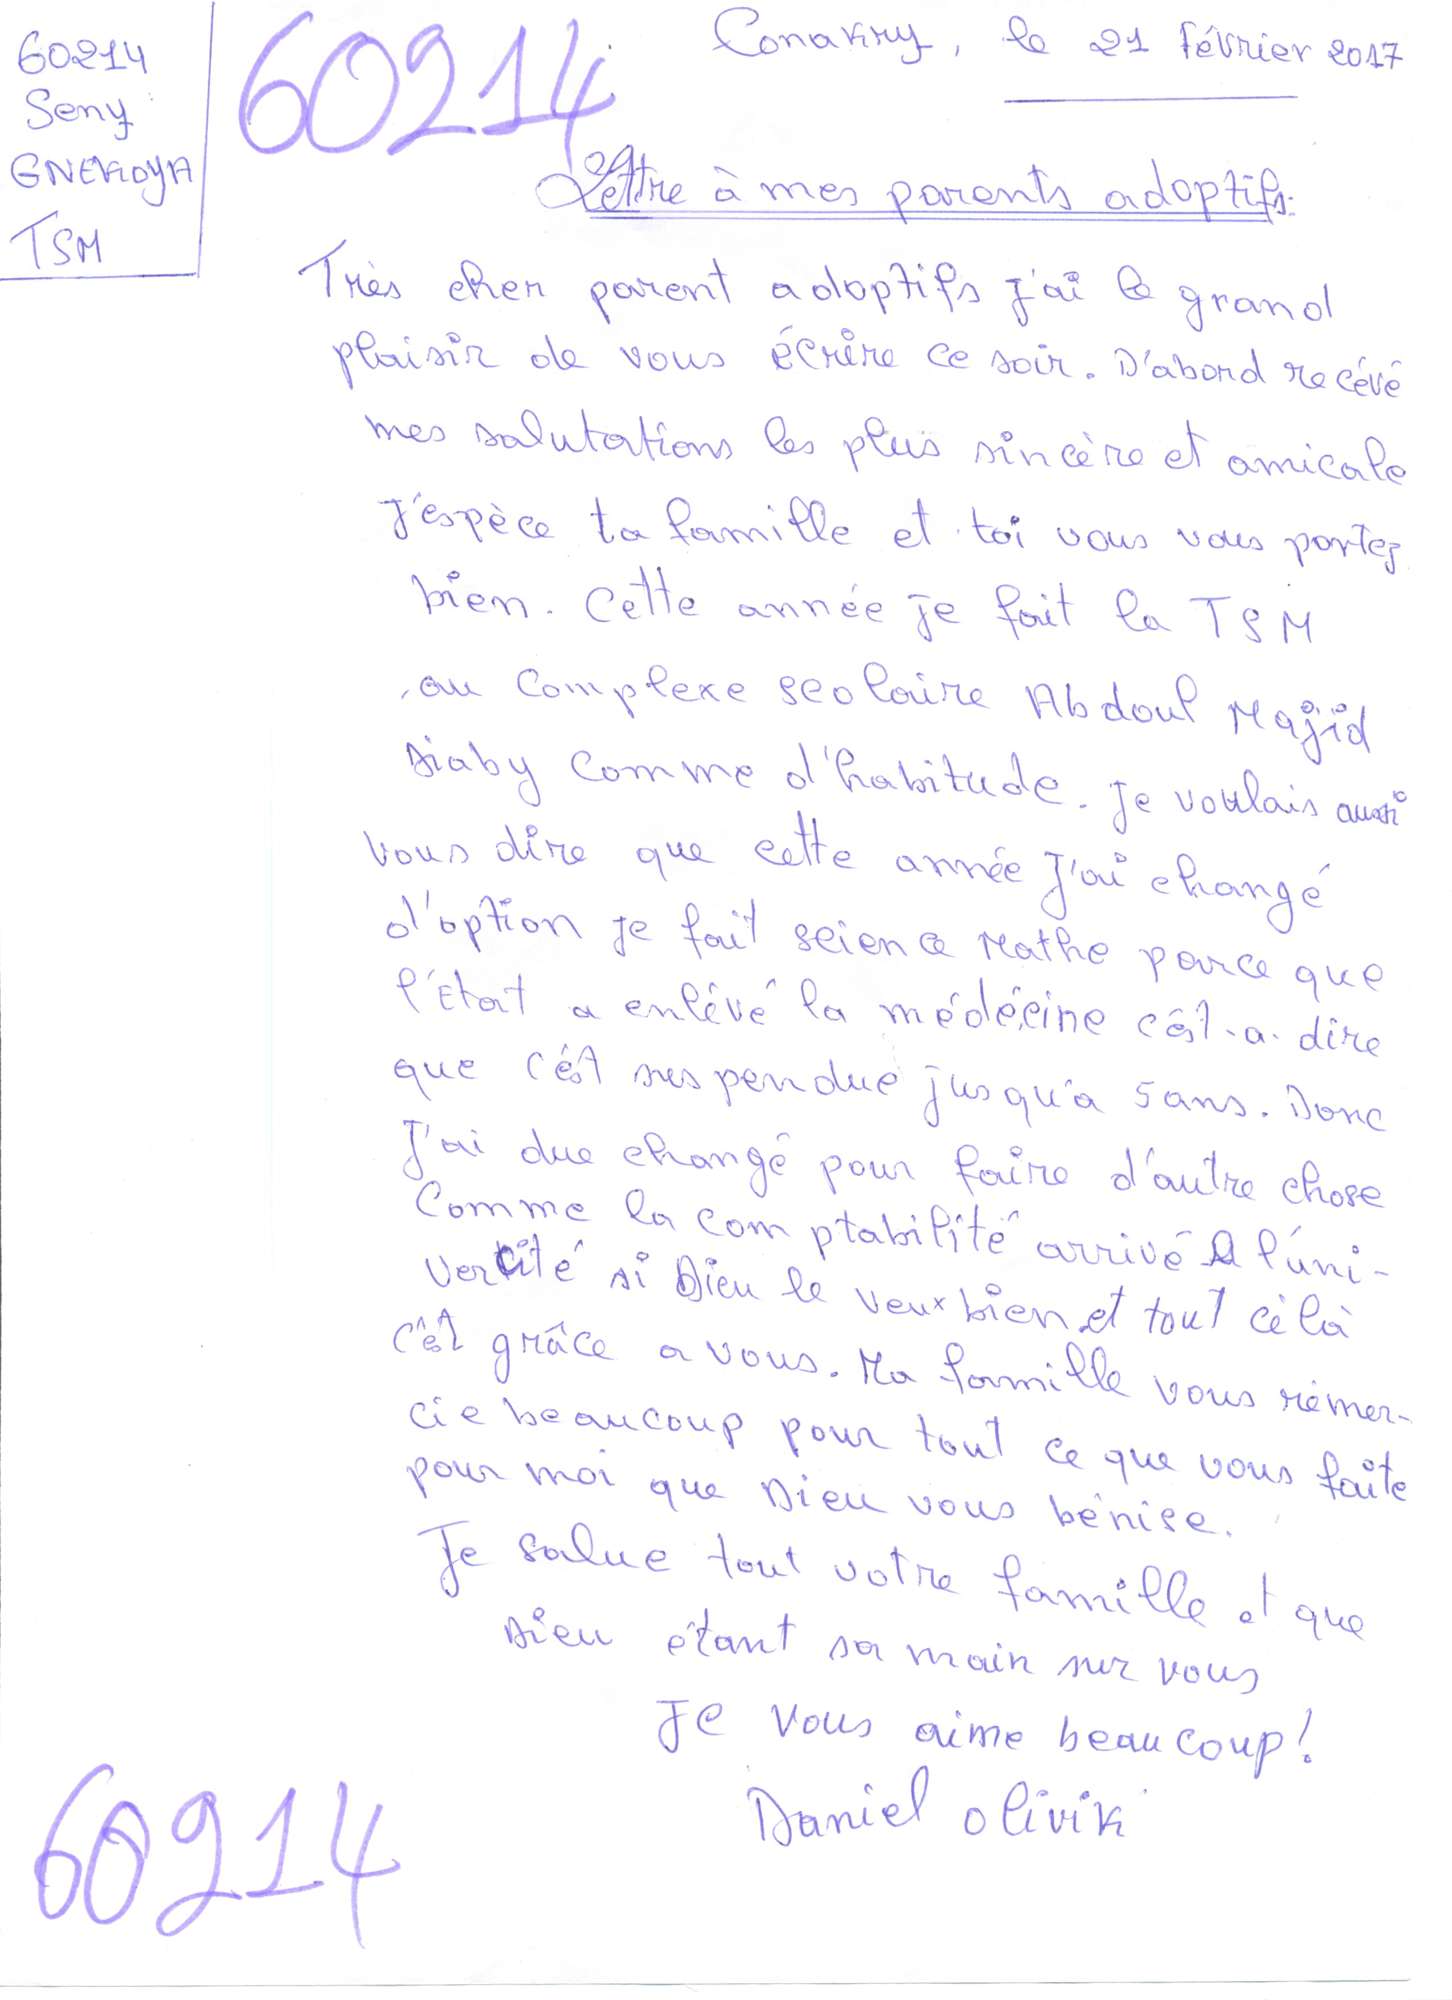 60214
Seny
GNEKOYA
TSM
60214
Conakry, le 21 février 2017
Lettre à mes parents adoptifs:
Très cher parent adoptifs j'ai le grand
plaisir de vous écrire ce soir. D'abord recévé
mes salutations les plus sincère et amicale
J'espèce ta famille et toi vous vous portez
bien. Cette année je fait la TSM
au Complexe scolaire Abdoul Majid
Diaby comme d'habitude. Je voulais aussi
vous dire que cette année J'ai changé
d'option je fait science Mathe parce que
l'Etat a enlévé la médécine c'est-a-dire
que c'est suspendue jusqu'a 5ans. Donc
J'ai due changé pour faire d'autre chose
Comme la comptabilité arrivé A l'úni-
vercité si Dieu le veux bien et tout célà
c'est grâce a vous. Ma famille vous rémer-
cie beaucoup pour tout ce que vous faîte
pour moi que Dieu vous bénise.
Je salue tout votre famille et que
Dieu étant sa main sur vous
Je vous aime beaucoup!
Daniel Olivik
60214